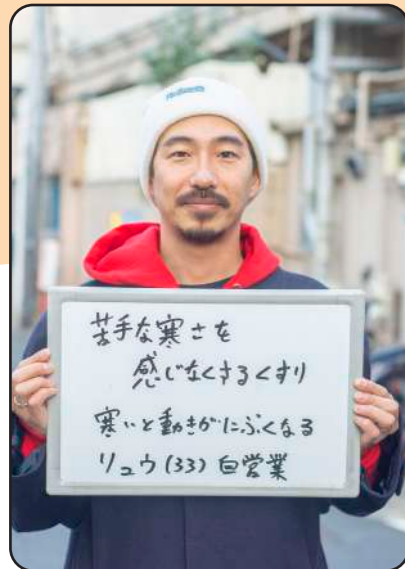 苦手な寒さを
感じなくなるくすり
寒いと動きがにぶくなる
リュウ(33)自営業